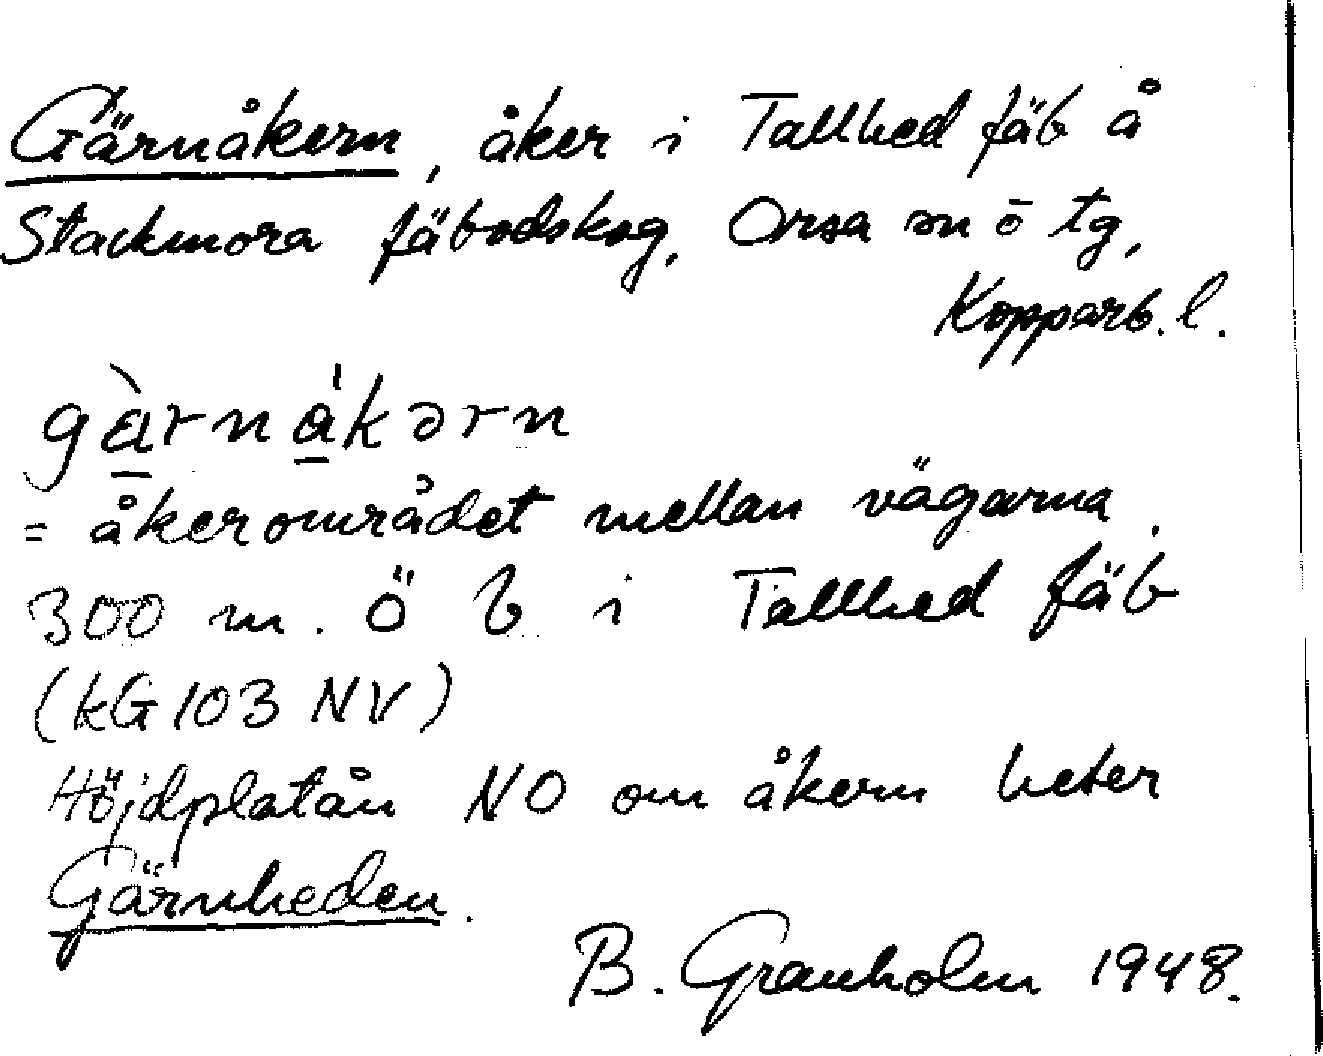 Gärnåkern, åker i Tallhed fäb å
Stackmora fäbodskog, Orsa sn ō tg,
Kopparb. l.
gàrnákərn
= åkerområdet mellan vägarna,
300 m. Ö b i Tallhed fäb
(kG 103 NV)
Höjdplatån NO om åkern heter
Gärnheden.
B. Granholm 1948.